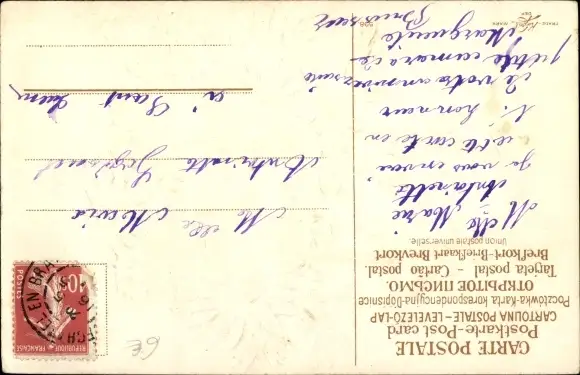 CARTE POSTALE
Postkarte-Post card
CARTOLINA POSTALE - LEVELEZŐ-LAP
Pocztówka-Karta korespondencyjna-Dopisnice
ОТКРЫТОЕ ПИСЬМО.
Tarjeta postal. - Cartão postal.
Brefkort-Briefkaart Brevkort
Union postale universelle.
Melle Marie
Antoinette
Je vous envoie
cette carte en
l'honneur
de votre anniversaire
petite camarade
Marguerite
TRADE MARK
Melle Maria
Antoinette
à Saint
REPUBLIQUE FRANÇAISE
10
POSTES
6€